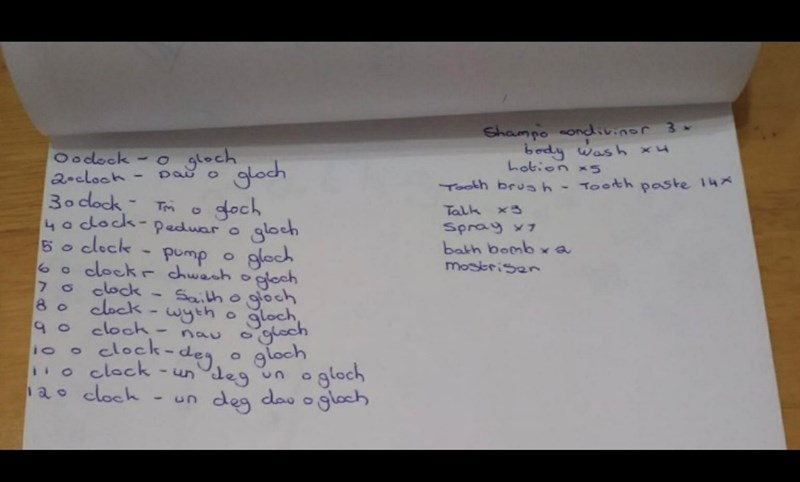 0 o clock - o gloch
2 o clock - Dau o gloch
3 o clock - Tri o gloch
4 o clock - pedwar o gloch
5 o clock - pump o gloch
6 o clock - chwech o gloch
7 o clock - Saith o gloch
8 o clock - wyth o gloch
9 o clock - nau o gloch
10 o clock - deg o gloch
11 o clock - un deg un o gloch
12 o clock - un deg dau o gloch
Shampo condivinor 3 x
body wash x 4
Lotion x 5
Tooth brush - Tooth paste 14 x
Talk x 3
Spray x 7
bath bomb x 2
mostrisen